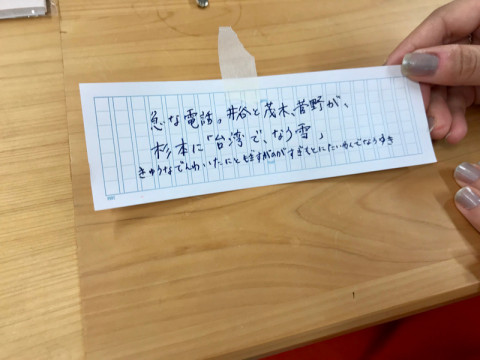 急な電話。井谷と茂木、菅野が、
杉本に「台湾で、なう雪」
きゅうなでんわいたにともぎすがのがすぎもとにたいわんでなうゆき